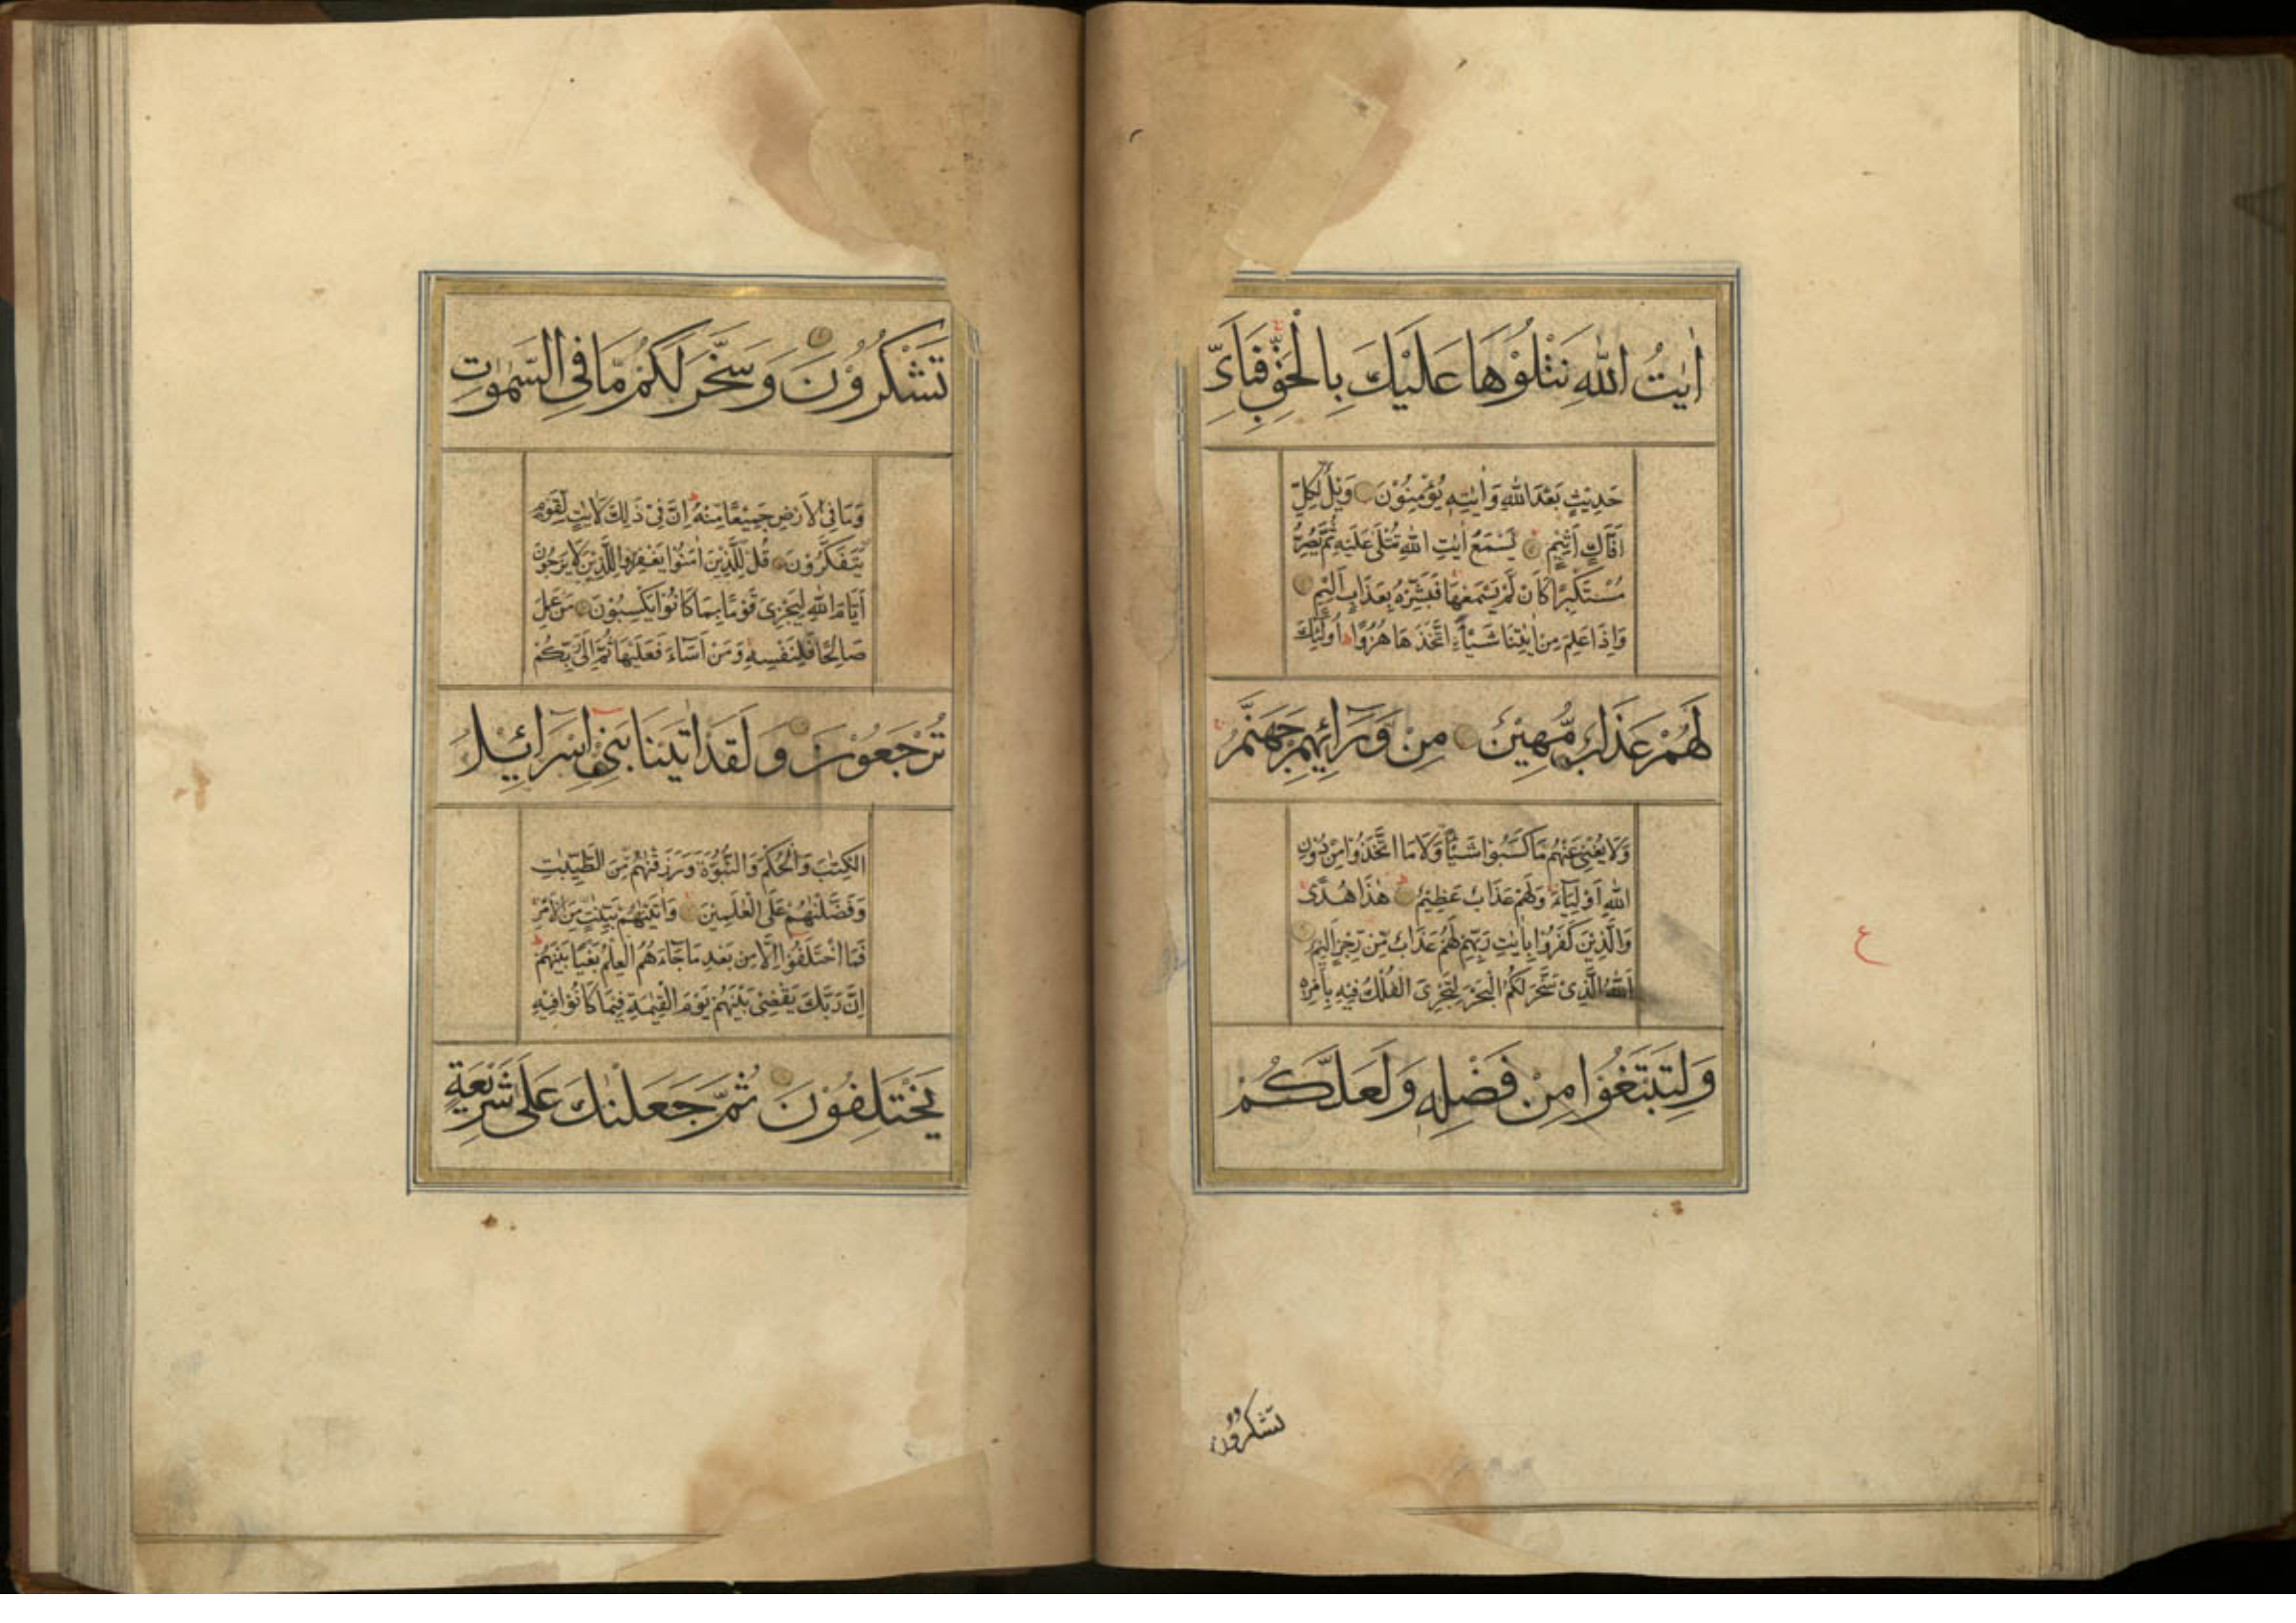 اٰيٰتُ اللّٰهِ نَتْلُوْهَا عَلَيْكَ بِالْحَقِّ فَبِاَيِّ
حَدِيْثٍ بَعْدَ اللّٰهِ وَاٰيٰتِهٖ يُؤْمِنُوْنَ وَيْلٌ لِكُلِّ
اَفَّاكٍ اَثِيْمٍ يَسْمَعُ اٰيٰتِ اللّٰهِ تُتْلٰى عَلَيْهِ ثُمَّ يُصِرُّ
مُسْتَكْبِرًا كَاَنْ لَمْ يَسْمَعْهَا فَبَشِّرْهُ بِعَذَابٍ اَلِيْمٍ
وَاِذَا عَلِمَ مِنْ اٰيٰتِنَا شَيْـًٔا اتَّخَذَهَا هُزُوًا اُولٰٓئِكَ
لَهُمْ عَذَابٌ مُّهِيْنٌ مِنْ وَّرَآئِهِمْ جَهَنَّمُ
وَلَا يُغْنِيْ عَنْهُمْ مَا كَسَبُوْا شَيْـًٔا وَلَا مَا اتَّخَذُوْا مِنْ دُوْنِ
اللّٰهِ اَوْلِيَآءَ وَلَهُمْ عَذَابٌ عَظِيْمٌ هٰذَا هُدًى
وَالَّذِيْنَ كَفَرُوْا بِاٰيٰتِ رَبِّهِمْ لَهُمْ عَذَابٌ مِّنْ رِّجْزٍ اَلِيْمٌ
اَللّٰهُ الَّذِيْ سَخَّرَ لَكُمُ الْبَحْرَ لِتَجْرِيَ الْفُلْكُ فِيْهِ بِاَمْرِهٖ
وَلِتَبْتَغُوْا مِنْ فَضْلِهٖ وَلَعَلَّكُمْ
ع
تشكرون
تَشْكُرُوْنَ وَسَخَّرَ لَكُمْ مَّا فِي السَّمٰوٰتِ
وَمَا فِي الْاَرْضِ جَمِيْعًا مِّنْهُ اِنَّ فِيْ ذٰلِكَ لَاٰيٰتٍ لِّقَوْمٍ
يَّتَفَكَّرُوْنَ قُلْ لِّلَّذِيْنَ اٰمَنُوْا يَغْفِرُوْا لِلَّذِيْنَ لَا يَرْجُوْنَ
اَيَّامَ اللّٰهِ لِيَجْزِيَ قَوْمًا بِمَا كَانُوْا يَكْسِبُوْنَ مَنْ عَمِلَ
صَالِحًا فَلِنَفْسِهٖ وَمَنْ اَسَآءَ فَعَلَيْهَا ثُمَّ اِلٰى رَبِّكُمْ
تُرْجَعُوْنَ وَلَقَدْ اٰتَيْنَا بَنِيْ اِسْرَآئِيْلَ
الْكِتٰبَ وَالْحُكْمَ وَالنُّبُوَّةَ وَرَزَقْنٰهُمْ مِّنَ الطَّيِّبٰتِ
وَفَضَّلْنٰهُمْ عَلَى الْعٰلَمِيْنَ وَاٰتَيْنٰهُمْ بَيِّنٰتٍ مِّنَ الْاَمْرِ
فَمَا اخْتَلَفُوْا اِلَّا مِنْ بَعْدِ مَا جَآءَهُمُ الْعِلْمُ بَغْيًا بَيْنَهُمْ
اِنَّ رَبَّكَ يَقْضِيْ بَيْنَهُمْ يَوْمَ الْقِيٰمَةِ فِيْمَا كَانُوْا فِيْهِ
يَخْتَلِفُوْنَ ثُمَّ جَعَلْنٰكَ عَلٰى شَرِيْعَةٍ